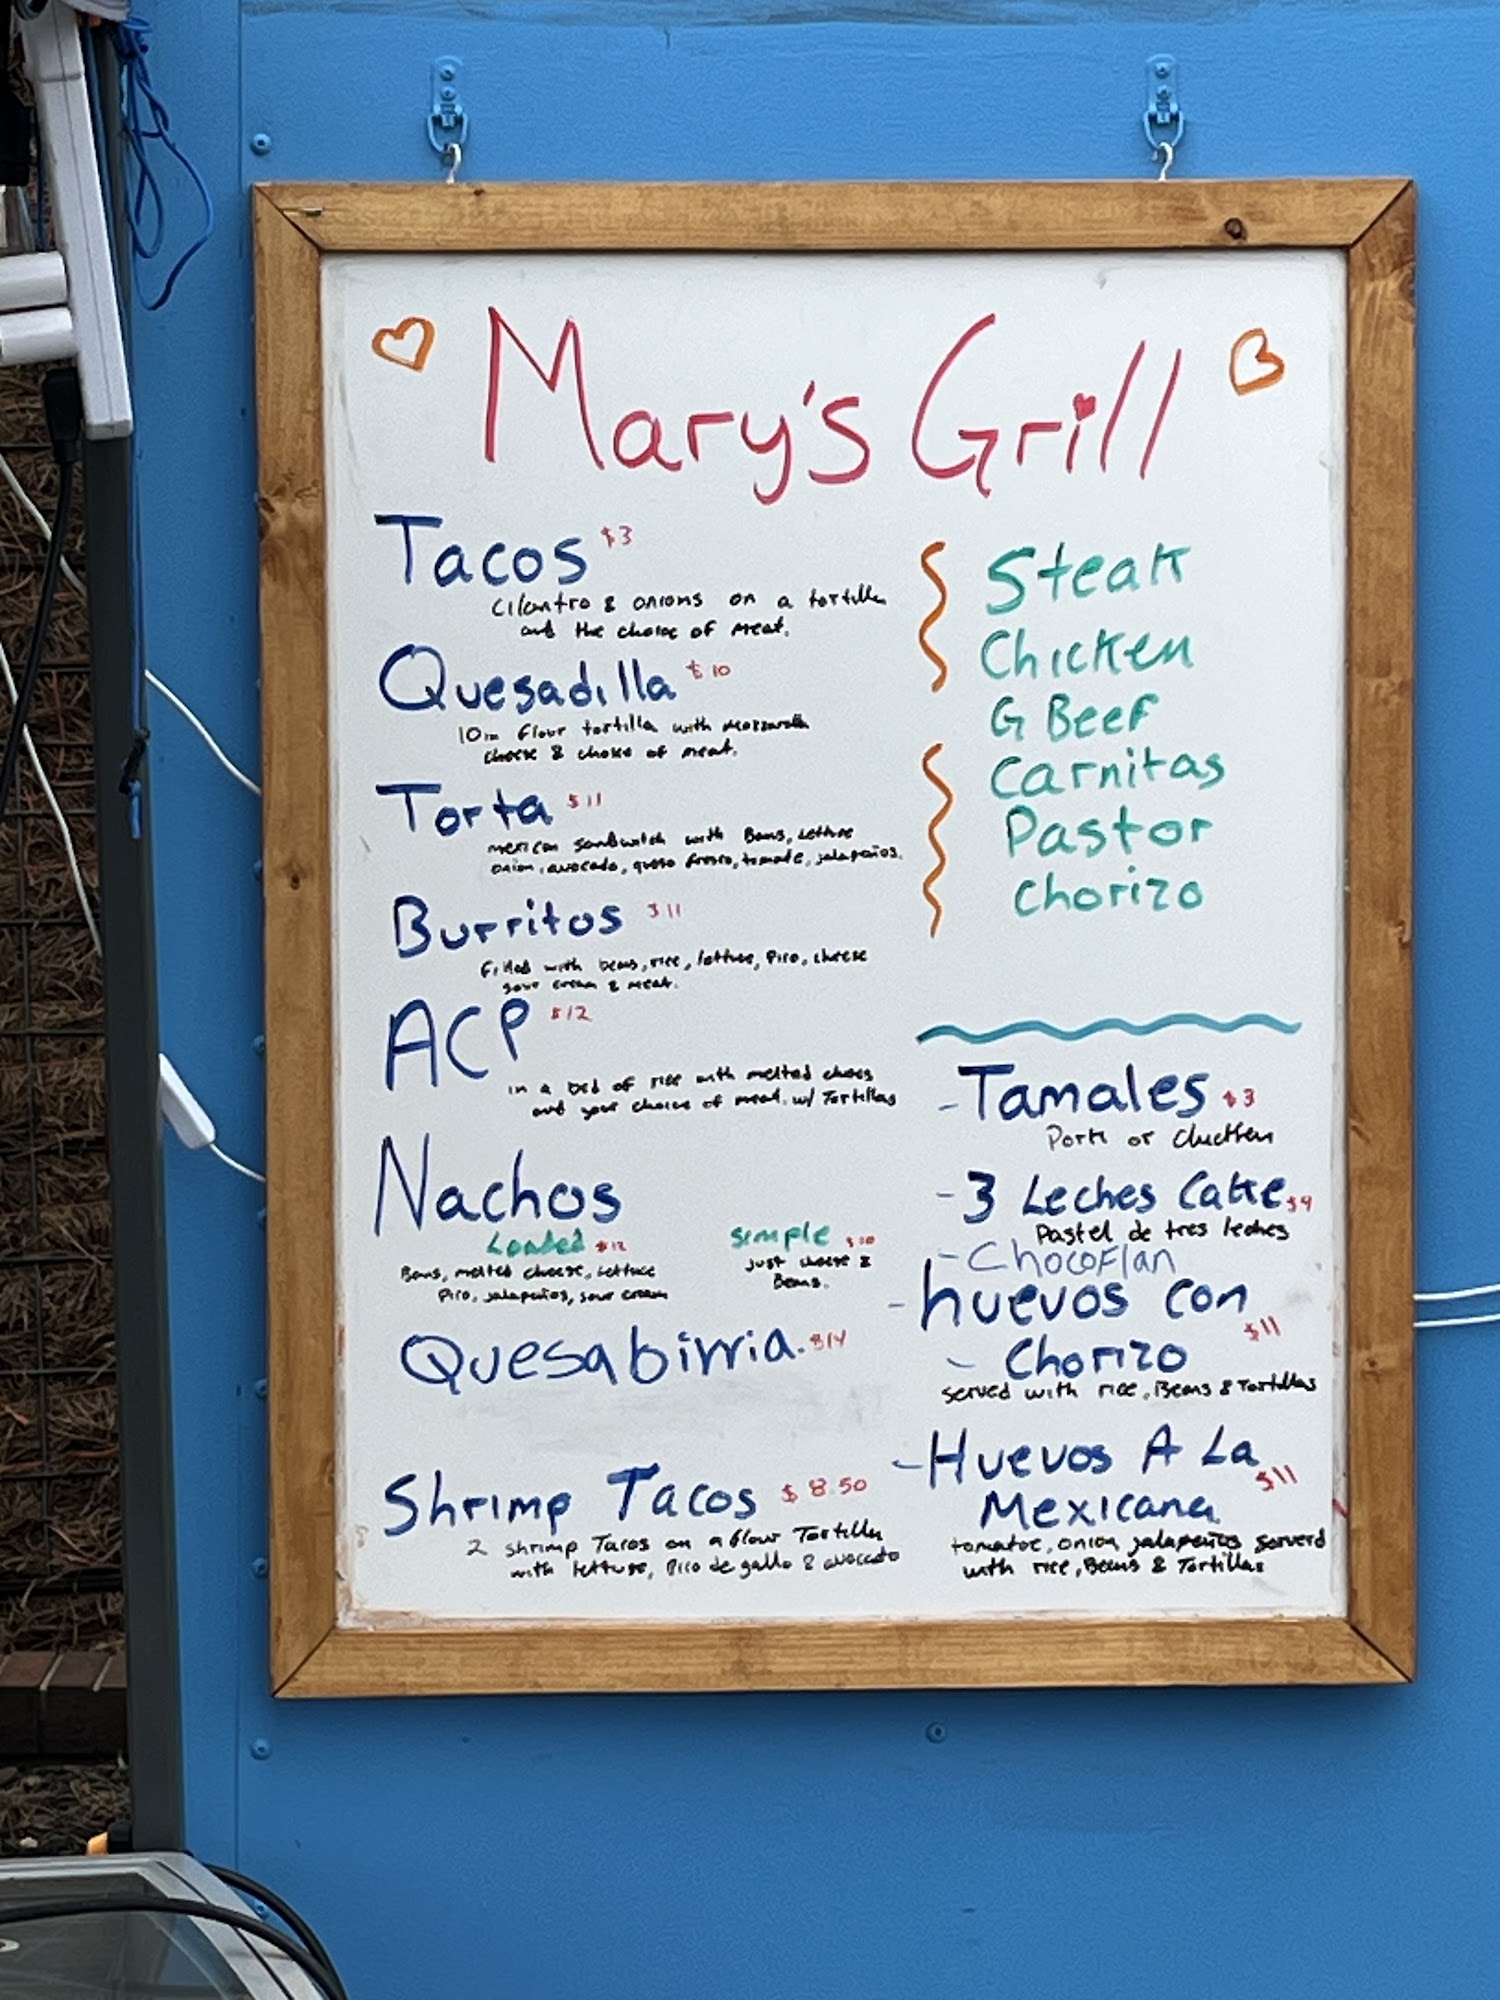 Mary's Grill
Tacos $3
Cilantro & onions on a tortilla
and the choice of meat.
Quesadilla $10
10in flour tortilla with mozzarella
cheese & choise of meat.
Torta $11
mexican sandwitch with Beans, Lettuce
onion, avocado, queso fresco, tomate, jalapeños.
Burritos $11
filled with beans, rice, lettuce, Pico, cheese
sour cream & meat.
ACP $12
in a bed of rice with melted chees
and your choice of meat. w/ Tortillas
Nachos
Loaded $12
Beans, melted cheese, Lettuce
Pico, jalapeños, sour cream
Simple $10
just cheese &
Beans.
Quesabirria. $14
Shrimp Tacos $8.50
2 shrimp Tacos on a flour Tortilla
with lettuse, Pico de gallo & avocado
Steak
Chicken
G Beef
Carnitas
Pastor
Chorizo
- Tamales $3
Pork or Chicken
- 3 Leches Cake $4
Pastel de tres leches
- Chocoflan
- huevos con
- Chorizo $11
served with rice, Beans & Tortillas
- Huevos A La
Mexicana $11
tomatoe, onion, jalapeños serverd
with rice, Beans & Tortillas